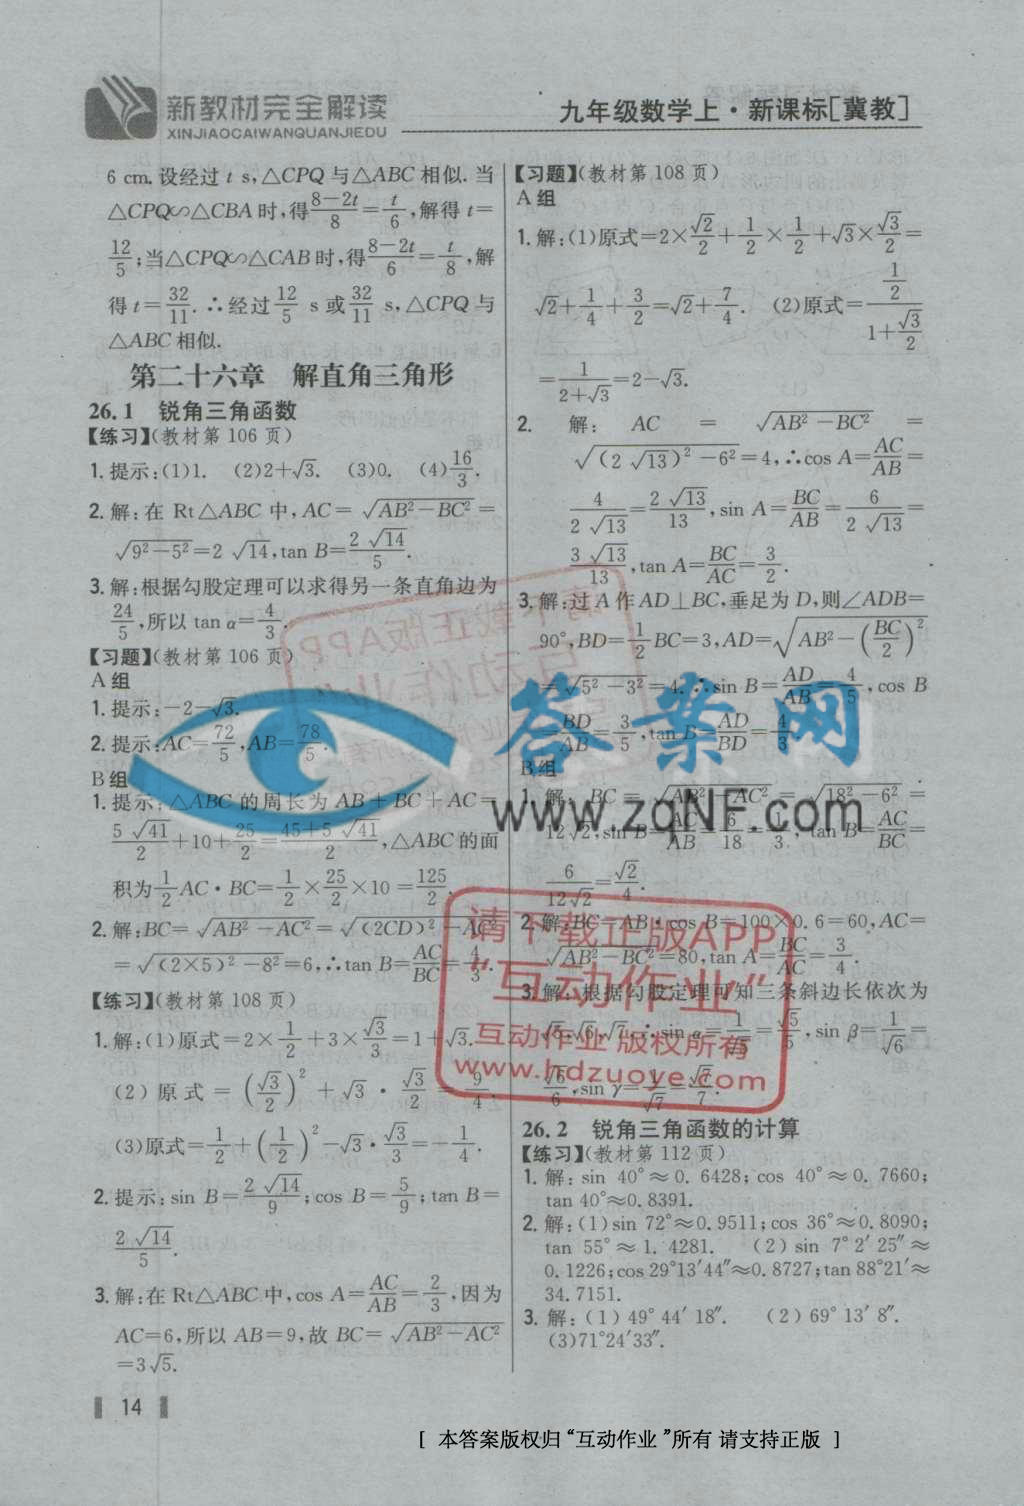 新教材完全解读
XINJIAOCAIWANQUANJIEDU
九年级数学上·新课标[冀教]
6 cm.设经过 t s,△CPQ与△ABC相似.当
△CPQ∽△CBA时,得(8-2t)/8=t/6,解得t=
12/5;当△CPQ∽△CAB时,得(8-2t)/6=t/8,解
得t=32/11.∴经过12/5 s或32/11 s,△CPQ与
△ABC相似.
第二十六章 解直角三角形
26.1 锐角三角函数
【练习】(教材第106页)
1.提示:(1)1. (2)2+√3. (3)0. (4)16/3.
2.解:在Rt△ABC中,AC=√(AB²-BC²)=
√(9²-5²)=2√14,tan B=2√14/5.
3.解:根据勾股定理可以求得另一条直角边为
24/5,所以tan α=4/3.
【习题】(教材第106页)
A组
1.提示:-2-√3.
2.提示:AC=72/5,AB=78/5.
B组
1.提示:△ABC的周长为AB+BC+AC=
5√41/2+10+25/2=(45+5√41)/2,△ABC的面
积为1/2AC·BC=1/2×25/2×10=125/2.
2.解:BC=√(AB²-AC²)=√((2CD)²-AC²)
=√((2×5)²-8²)=6,∴tan B=AC/BC=4/3.
【练习】(教材第108页)
1.解:(1)原式=2×1/2+3×√3/3=1+√3.
(2)原式=(√3/2)²+√3·√3/2=9/4.
(3)原式=1/2+(1/2)²-√3·√3/3=-1/4.
2.提示:sin B=2√14/9;cos B=5/9;tan B=
2√14/5.
3.解:在Rt△ABC中,cos A=AC/AB=2/3,因为
AC=6,所以AB=9,故BC=√(AB²-AC²)
=3√5.
【习题】(教材第108页)
A组
1.解:(1)原式=2×√2/2+1/2×1/2+√3×√3/2=
√2+1/4+3/2=√2+7/4. (2)原式=(1/2)/(1+√3/2)
=1/(2+√3)=2-√3.
2. 解: AC = √(AB²-BC²) =
√((2√13)²-6²)=4,∴cos A=AC/AB=
4/(2√13)=2√13/13,sin A=BC/AB=6/(2√13)=
3√13/13,tan A=BC/AC=3/2.
3.解:过A作AD⊥BC,垂足为D,则∠ADB=
90°,BD=1/2BC=3,AD=√(AB²-(BC/2)²)
=√(5²-3²)=4.∴sin B=AD/AB=4/5,cos B
=BD/AB=3/5,tan B=AD/BD=4/3.
B组
1.解:BC=√(AB²-AC²)=√(18²-6²)=
12√2,sin B=AC/AB=6/18=1/3,tan B=AC/BC=
6/(12√2)=√2/4.
2.解:BC=AB·cos B=100×0.6=60,AC=
√(AB²-BC²)=80,tan A=BC/AC=3/4.
3.解:根据勾股定理可知三条斜边长依次为
√5,√6,√7,∴sin α=1/√5=√5/5,sin β=1/√6=
√6/6,sin γ=1/√7=√7/7.
26.2 锐角三角函数的计算
【练习】(教材第112页)
1.解:sin 40°≈0.6428;cos 40°≈0.7660;
tan 40°≈0.8391.
2.解:(1)sin 72°≈0.9511;cos 36°≈0.8090;
tan 55°≈1.4281. (2)sin 7°2′25″≈
0.1226;cos 29°13′44″≈0.8727;tan 88°21′≈
34.7151.
3.解:(1)49°44′18″. (2)69°13′8″.
(3)71°24′33″.
答案网
www.zqNF.com
请下载正版APP
“互动作业”
互动作业 版权所有
www.hdzuoye.com
14
[ 本答案版权归“互动作业”所有 请支持正版 ]